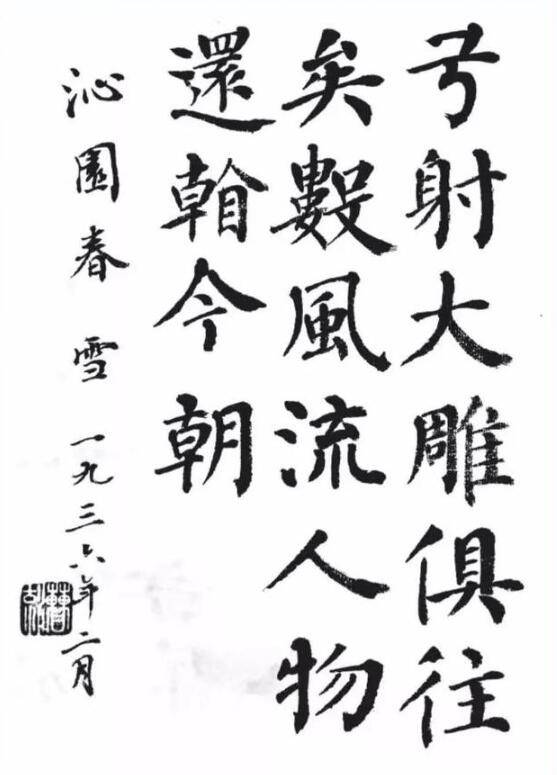 弓射大雕俱往
矣數風流人物
還看今朝
沁園春 雪 一九三六年二月